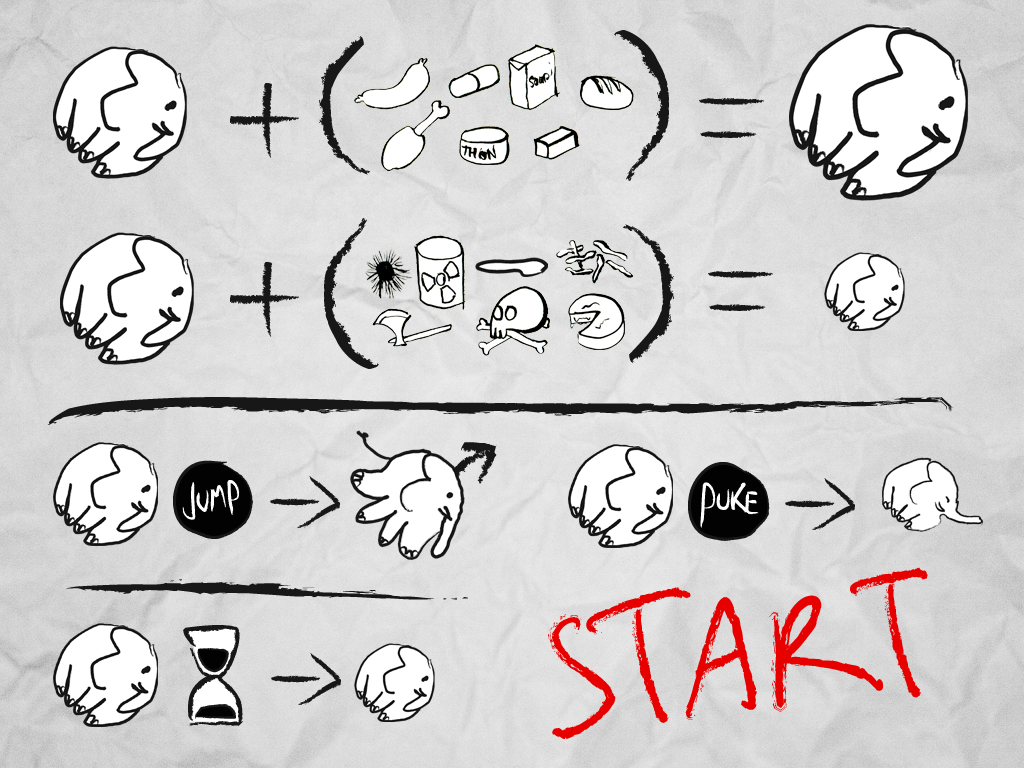 SOUP
THON
JUMP
PUKE
START